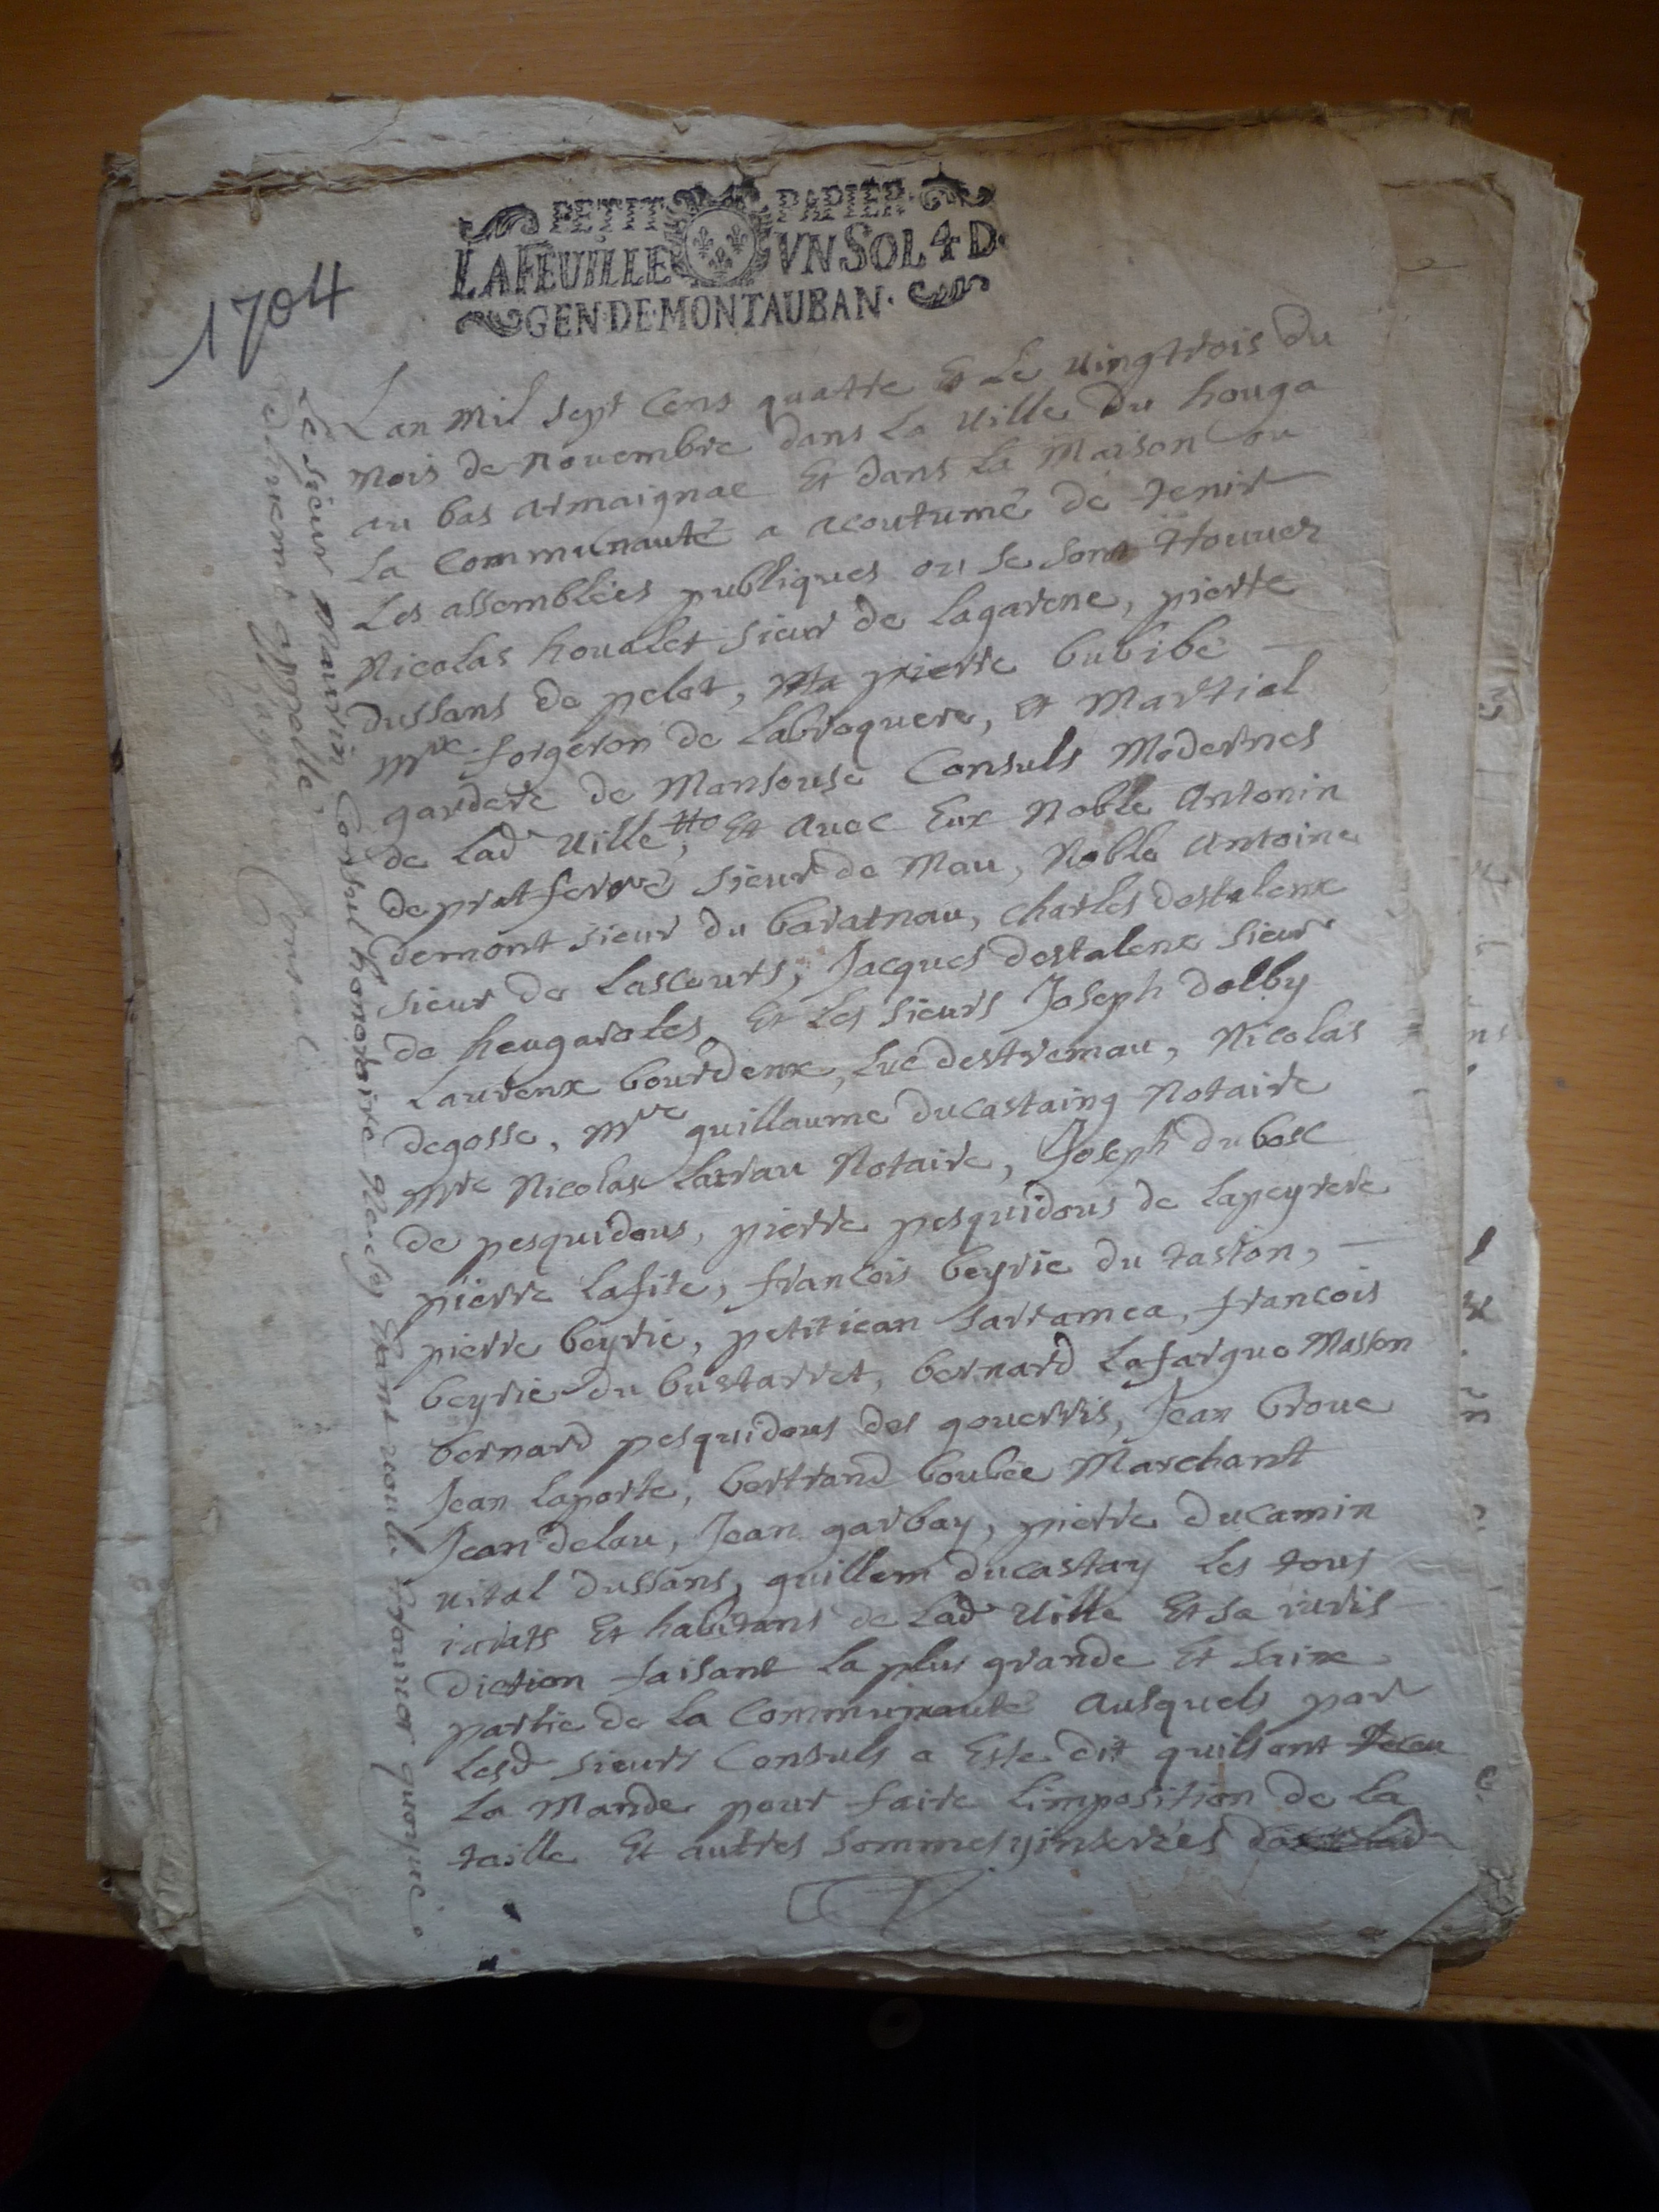 PETIT PAPIER
LA FEUILLE VN SOL 4 D.
GEN·DE·MONTAUBAN·
1704
Lan mil sept cens quatre Et le vingtrois du
mois de novembre dans la ville du houga
au bas armaignac Et dans la maison ou
la communauté a acoutumé de tenir
les assemblées publiques ou se sont trouuez
Nicolas houalet sieur de lagarene, pierre
dussans de pelot, pierre bubibé
mre forgeron de labroquere, et martial
gardere de mansouse Consuls modernes
de lad ville, Et auec Eux noble antonin
de pratferré sieur de mau, noble antoine
demont sieur du baratnau, charles destalenx
sieur de lascourts, Jacques destalenx sieur
de heugaroles, Et les sieurs Joseph dolby
laurenx bourdenx, luc destremau, nicolas
degosse, mre guillaume ducastaing notaire
mre nicolas latrau notaire, Joseph dubosc
de pesquidous, pierre pesquidous de lapeyrere
pierre lafite, francois beyrie du taston,
pierre beyrie, petit iean sarramea, francois
beyrie du bustarret, bernard lafargue masson
bernard pesquidous des gouerris, Jean broue
Jean laporte, bertrand boubée marchant
Jean delau, Jean garbay, pierre ducamin
vital dussans, guillem ducastay les tous
iurats Et habitans de lad ville Et sa iuris
diction faisant la plus grande Et saine
partie de la communauté ausquels par
lesd sieurs consuls a Este dit quils ont receu
la mande pour faire limposition de la
taille Et autres sommes y inserées
Le sieur maurin Consul honoraire estant trouuer quoyque
appellé